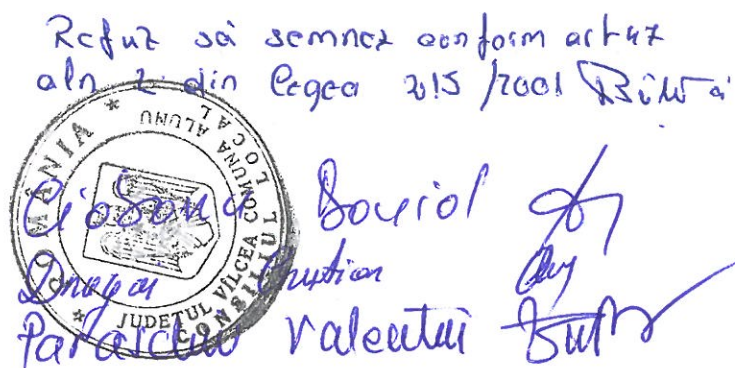 Refuz să semnez conform art 47
aln 2 din Legea 215/2001
ROMÂNIA
JUDEȚUL VÎLCEA COMUNA ALUNU
CONSILIUL LOCAL
Dragoi Cristian
Paraschiv Valentin